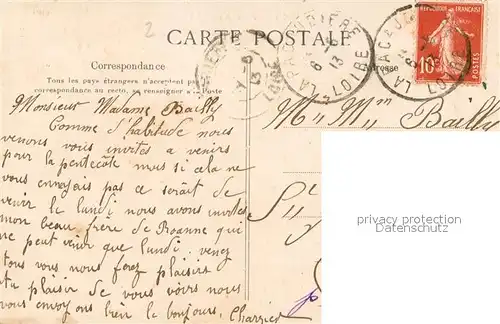 CARTE POSTALE
Correspondance
Adresse
Tous les pays étrangers n'acceptent pas
correspondance au recto, se renseigner à la Poste
RÉPUBLIQUE FRANÇAISE
10c
LA PACAUDIÈRE
LOIRE
13
2
Monsieur Madame Bailly
Comme d'habitude nous
venons vous invités a venirs
pour la pentecôte mais si cela ne
vous ennuyais pas ce serait de
venir le lundi nous avons invités
mon beau frère de Roanne qui
ne peut venir que lundi. venez
tous vous nous ferez plaisirs
au plaisir de vous voirs nous
vous envoyons bien le bonjours, Charrier
Mr Mme Bailly
privacy protection
Datenschutz